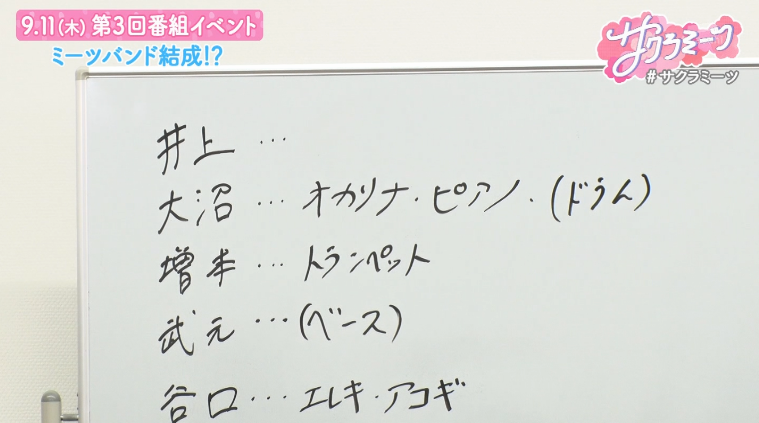 9.11(木) 第3回番組イベント
ミーツバンド結成!?
サクラミーツ
#サクラミーツ
井上…
大沼…オカリナ・ピアノ・(ドラム)
増本…トランペット
武元…(ベース)
谷口…エレキ・アコギ